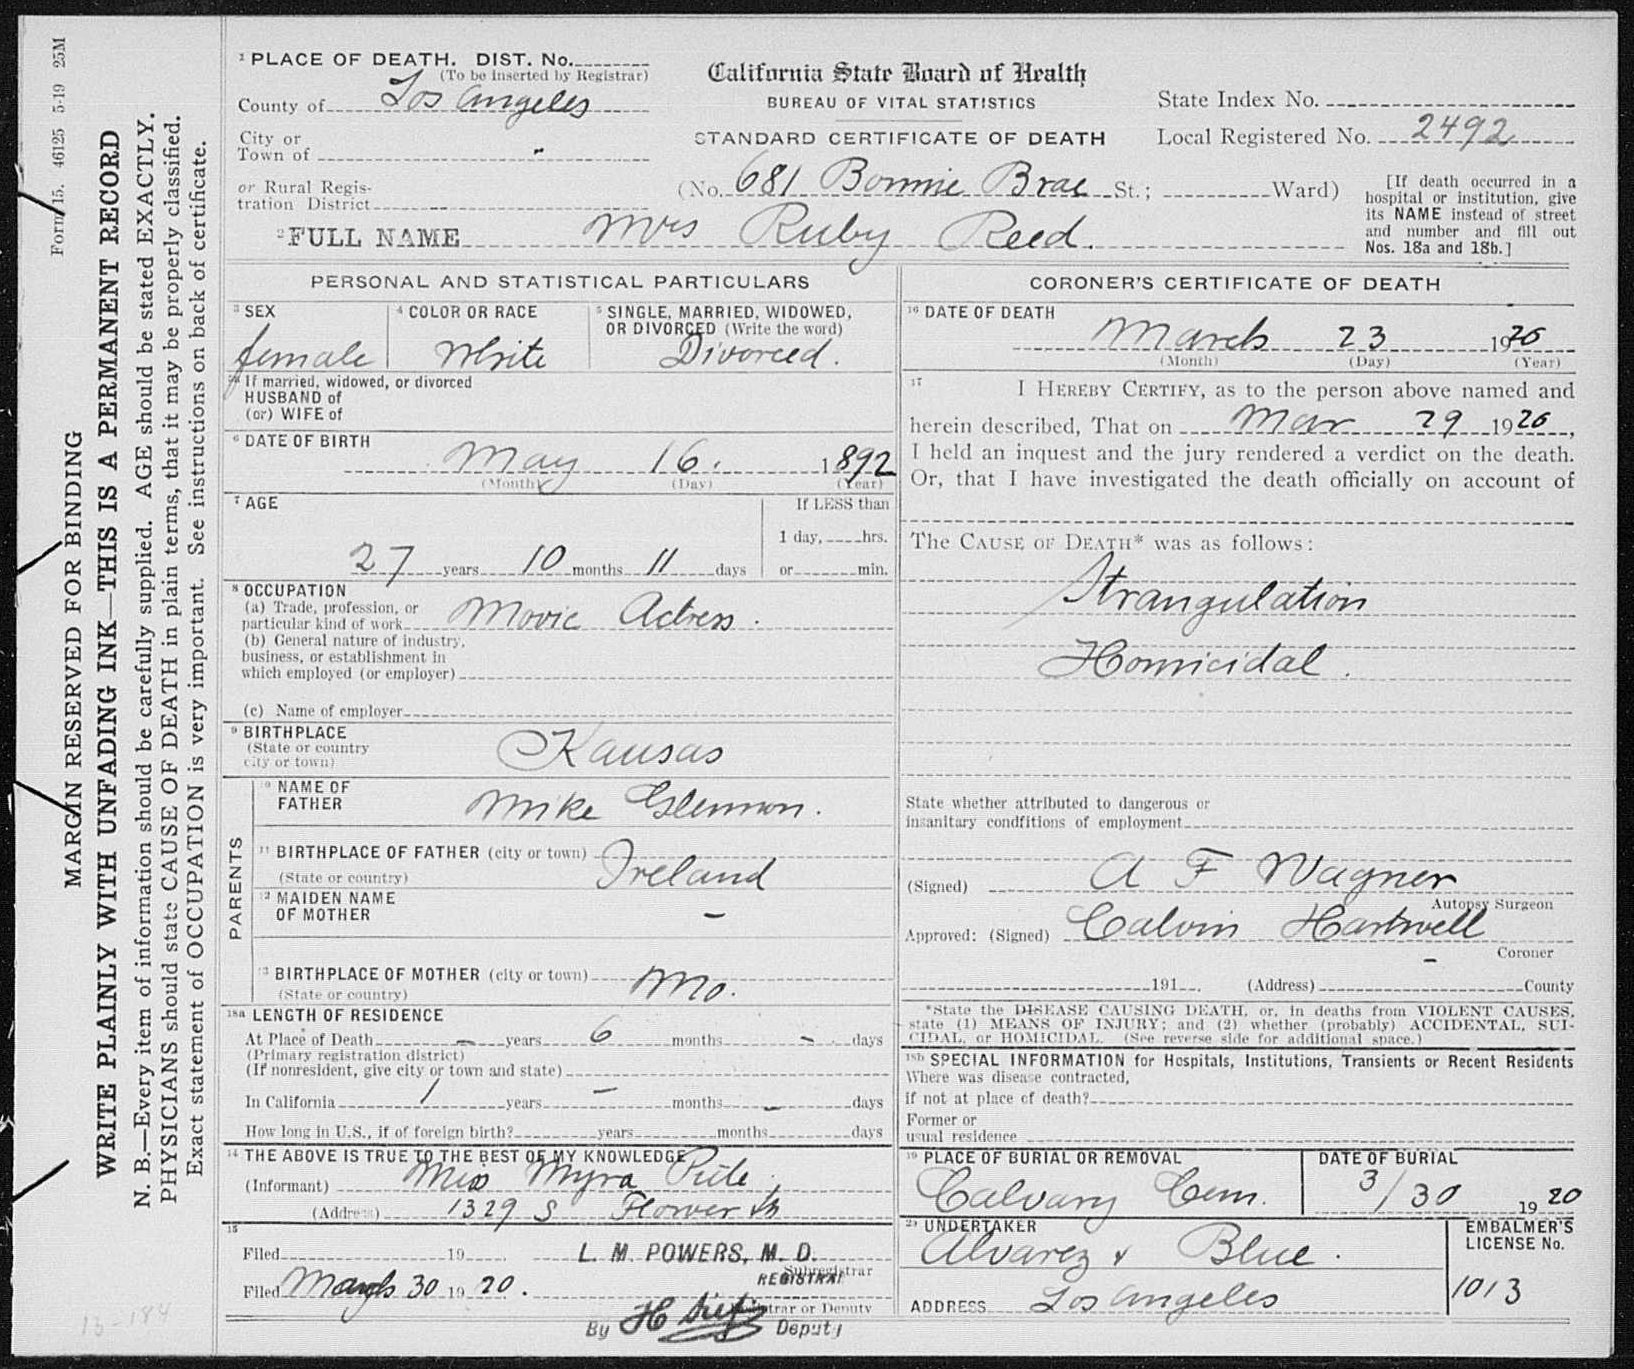 Form 15. 46125 5-19 25M
MARGIN RESERVED FOR BINDING
WRITE PLAINLY WITH UNFADING INK—THIS IS A PERMANENT RECORD
N. B.—Every item of information should be carefully supplied. AGE should be stated EXACTLY.
PHYSICIANS should state CAUSE OF DEATH in plain terms, that it may be properly classified.
Exact statement of OCCUPATION is very important. See instructions on back of certificate.
1 PLACE OF DEATH. DIST. No.
(To be inserted by Registrar)
County of Los Angeles
City or
Town of "
or Rural Regis-
tration District
California State Board of Health
BUREAU OF VITAL STATISTICS
STANDARD CERTIFICATE OF DEATH
State Index No.
Local Registered No. 2492
(No. 681 Bonnie Brae St.; Ward)
[If death occurred in a
hospital or institution, give
its NAME instead of street
and number and fill out
Nos. 18a and 18b.]
2 FULL NAME Mrs Ruby Reed.
PERSONAL AND STATISTICAL PARTICULARS
3 SEX
female
4 COLOR OR RACE
White
5 SINGLE, MARRIED, WIDOWED,
OR DIVORCED (Write the word)
Divorced.
5a If married, widowed, or divorced
HUSBAND of
(or) WIFE of
6 DATE OF BIRTH
May 16. 1892
(Month) (Day) (Year)
7 AGE
27 years 10 months 11 days
If LESS than
1 day, hrs.
or min.
8 OCCUPATION
(a) Trade, profession, or
particular kind of work Movie Actress.
(b) General nature of industry,
business, or establishment in
which employed (or employer)
(c) Name of employer
9 BIRTHPLACE
(State or country
city or town) Kansas
PARENTS
10 NAME OF
FATHER Mike Glennon.
11 BIRTHPLACE OF FATHER (city or town)
(State or country) Ireland
12 MAIDEN NAME
OF MOTHER –
13 BIRTHPLACE OF MOTHER (city or town)
(State or country) Mo.
18a LENGTH OF RESIDENCE
At Place of Death – years 6 months – days
(Primary registration district)
(If nonresident, give city or town and state)
In California 1 years – months – days
How long in U.S., if of foreign birth? years months days
14 THE ABOVE IS TRUE TO THE BEST OF MY KNOWLEDGE
(Informant) Miss Myra
(Address) 1329 S Flower St
15
Filed 19 L. M. POWERS, M. D.
Subregistrar
REGISTRAR
Filed March 30 1920.
Registrar or Deputy
By H Deputy
13-184
CORONER'S CERTIFICATE OF DEATH
16 DATE OF DEATH
March 23 1920
(Month) (Day) (Year)
17 I HEREBY CERTIFY, as to the person above named and
herein described, That on Mar 29 1920,
I held an inquest and the jury rendered a verdict on the death.
Or, that I have investigated the death officially on account of
The CAUSE OF DEATH* was as follows:
Strangulation
Homicidal.
State whether attributed to dangerous or
insanitary condfitions of employment
(Signed) A F Wagner
Autopsy Surgeon
Approved: (Signed) Calvin Hartwell
Coroner
191 (Address) County
*State the DISEASE CAUSING DEATH, or, in deaths from VIOLENT CAUSES,
state (1) MEANS OF INJURY; and (2) whether (probably) ACCIDENTAL, SUI-
CIDAL, or HOMICIDAL. (See reverse side for additional space.)
18b SPECIAL INFORMATION for Hospitals, Institutions, Transients or Recent Residents
Where was disease contracted,
if not at place of death?
Former or
usual residence
19 PLACE OF BURIAL OR REMOVAL
Calvary Cem.
DATE OF BURIAL
3/30 1920
20 UNDERTAKER
Alvarez & Blue.
ADDRESS Los Angeles
EMBALMER'S
LICENSE No.
1013